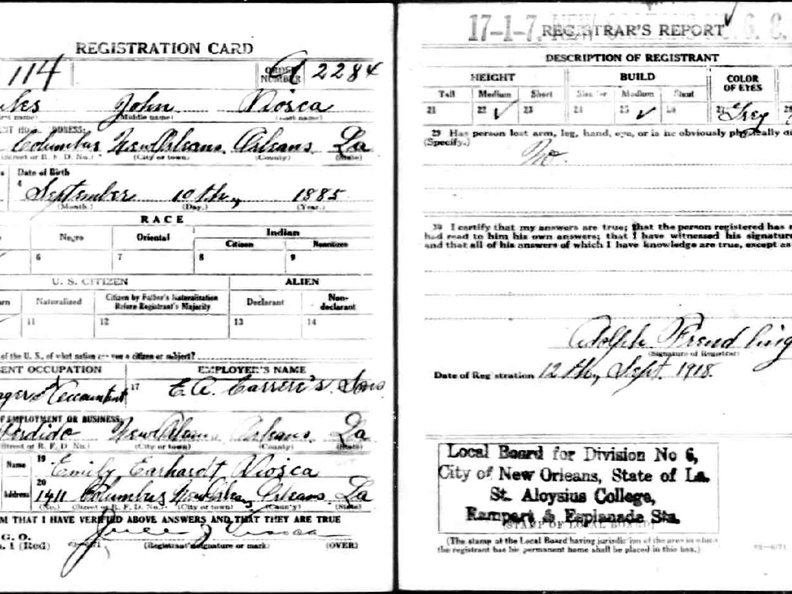 REGISTRATION CARD
114 ORDER NUMBER A 2284
John Viosca
(Middle name) (Last name)
Columbus New Orleans Orleans La
(Street or R. F. D. No.) (City or town) (County) (State)
Date of Birth
September 10th, 1885
(Month.) (Day.) (Year.)
RACE
Negro Oriental Indian
Citizen Noncitizen
6 7 8 9
U. S. CITIZEN ALIEN
Naturalized Citizen by Father's Naturalization Before Registrant's Majority Declarant Non-declarant
11 12 13 14
of the U. S., of what nation are you a citizen or subject?
OCCUPATION EMPLOYER'S NAME
Accountant 17 Sons
OF EMPLOYMENT OR BUSINESS
New Orleans Orleans La
(Street or R. F. D. No.) (City or town) (County) (State)
Name 19 Emily Earhardt Viosca
20
Address 1411 Columbus New Orleans Orleans La
(No.) (Street or R. F. D. No.) (City or town) (County) (State)
THAT I HAVE VERIFIED ABOVE ANSWERS AND THAT THEY ARE TRUE
G. O.
1 (Red) (Registrant's signature or mark) (OVER)
17-1-7
REGISTRAR'S REPORT
DESCRIPTION OF REGISTRANT
HEIGHT BUILD COLOR OF EYES
Tall Medium Short Slender Medium Stout
21 22 ✓ 23 24 25 ✓ 26 27 Grey
29 Has person lost arm, leg, hand, eye, or is he obviously physically
(Specify.) No.
30 I certify that my answers are true; that the person registered has
had read to him his own answers; that I have witnessed his signature
and that all of his answers of which I have knowledge are true, except as
Adolph
(Signature of Registrar)
Date of Registration 12th, Sept. 1918.
Local Board for Division No 6,
City of New Orleans, State of La.
St. Aloysius College,
Rampart & Esplanade Sts.
(STAMP OF LOCAL BOARD)
(The stamp of the Local Board having jurisdiction of the area in which
the registrant has his permanent home shall be placed in this box.)